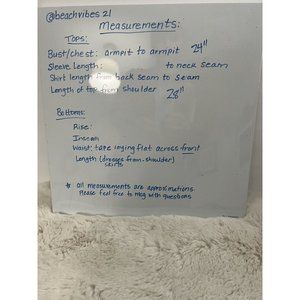 @beachvibes21
Measurements:
Tops:
Bust/chest: armpit to armpit 24"
Sleeve Length: to neck seam
Shirt length from back seam to seam
Length of top from shoulder 28"
Bottoms:
Rise:
Inseam
Waist: tape laying flat across front
Length (dresses from shoulder)
skirts
* all measurements are approximations.
Please feel free to msg with questions